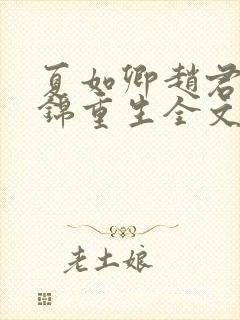 夏如卿趙君
錦重生全文
老土娘